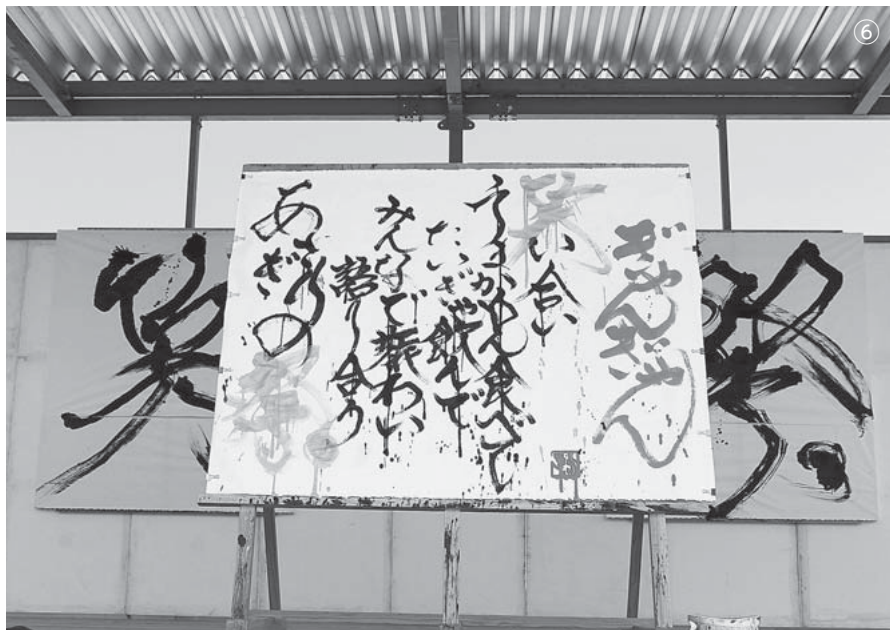 ⑥
ぎゃんぎゃん
い合い
うまかもん食べて
たいぎゃ飲んで
みんなで賑わい
語り合う
あさぎりの
笑